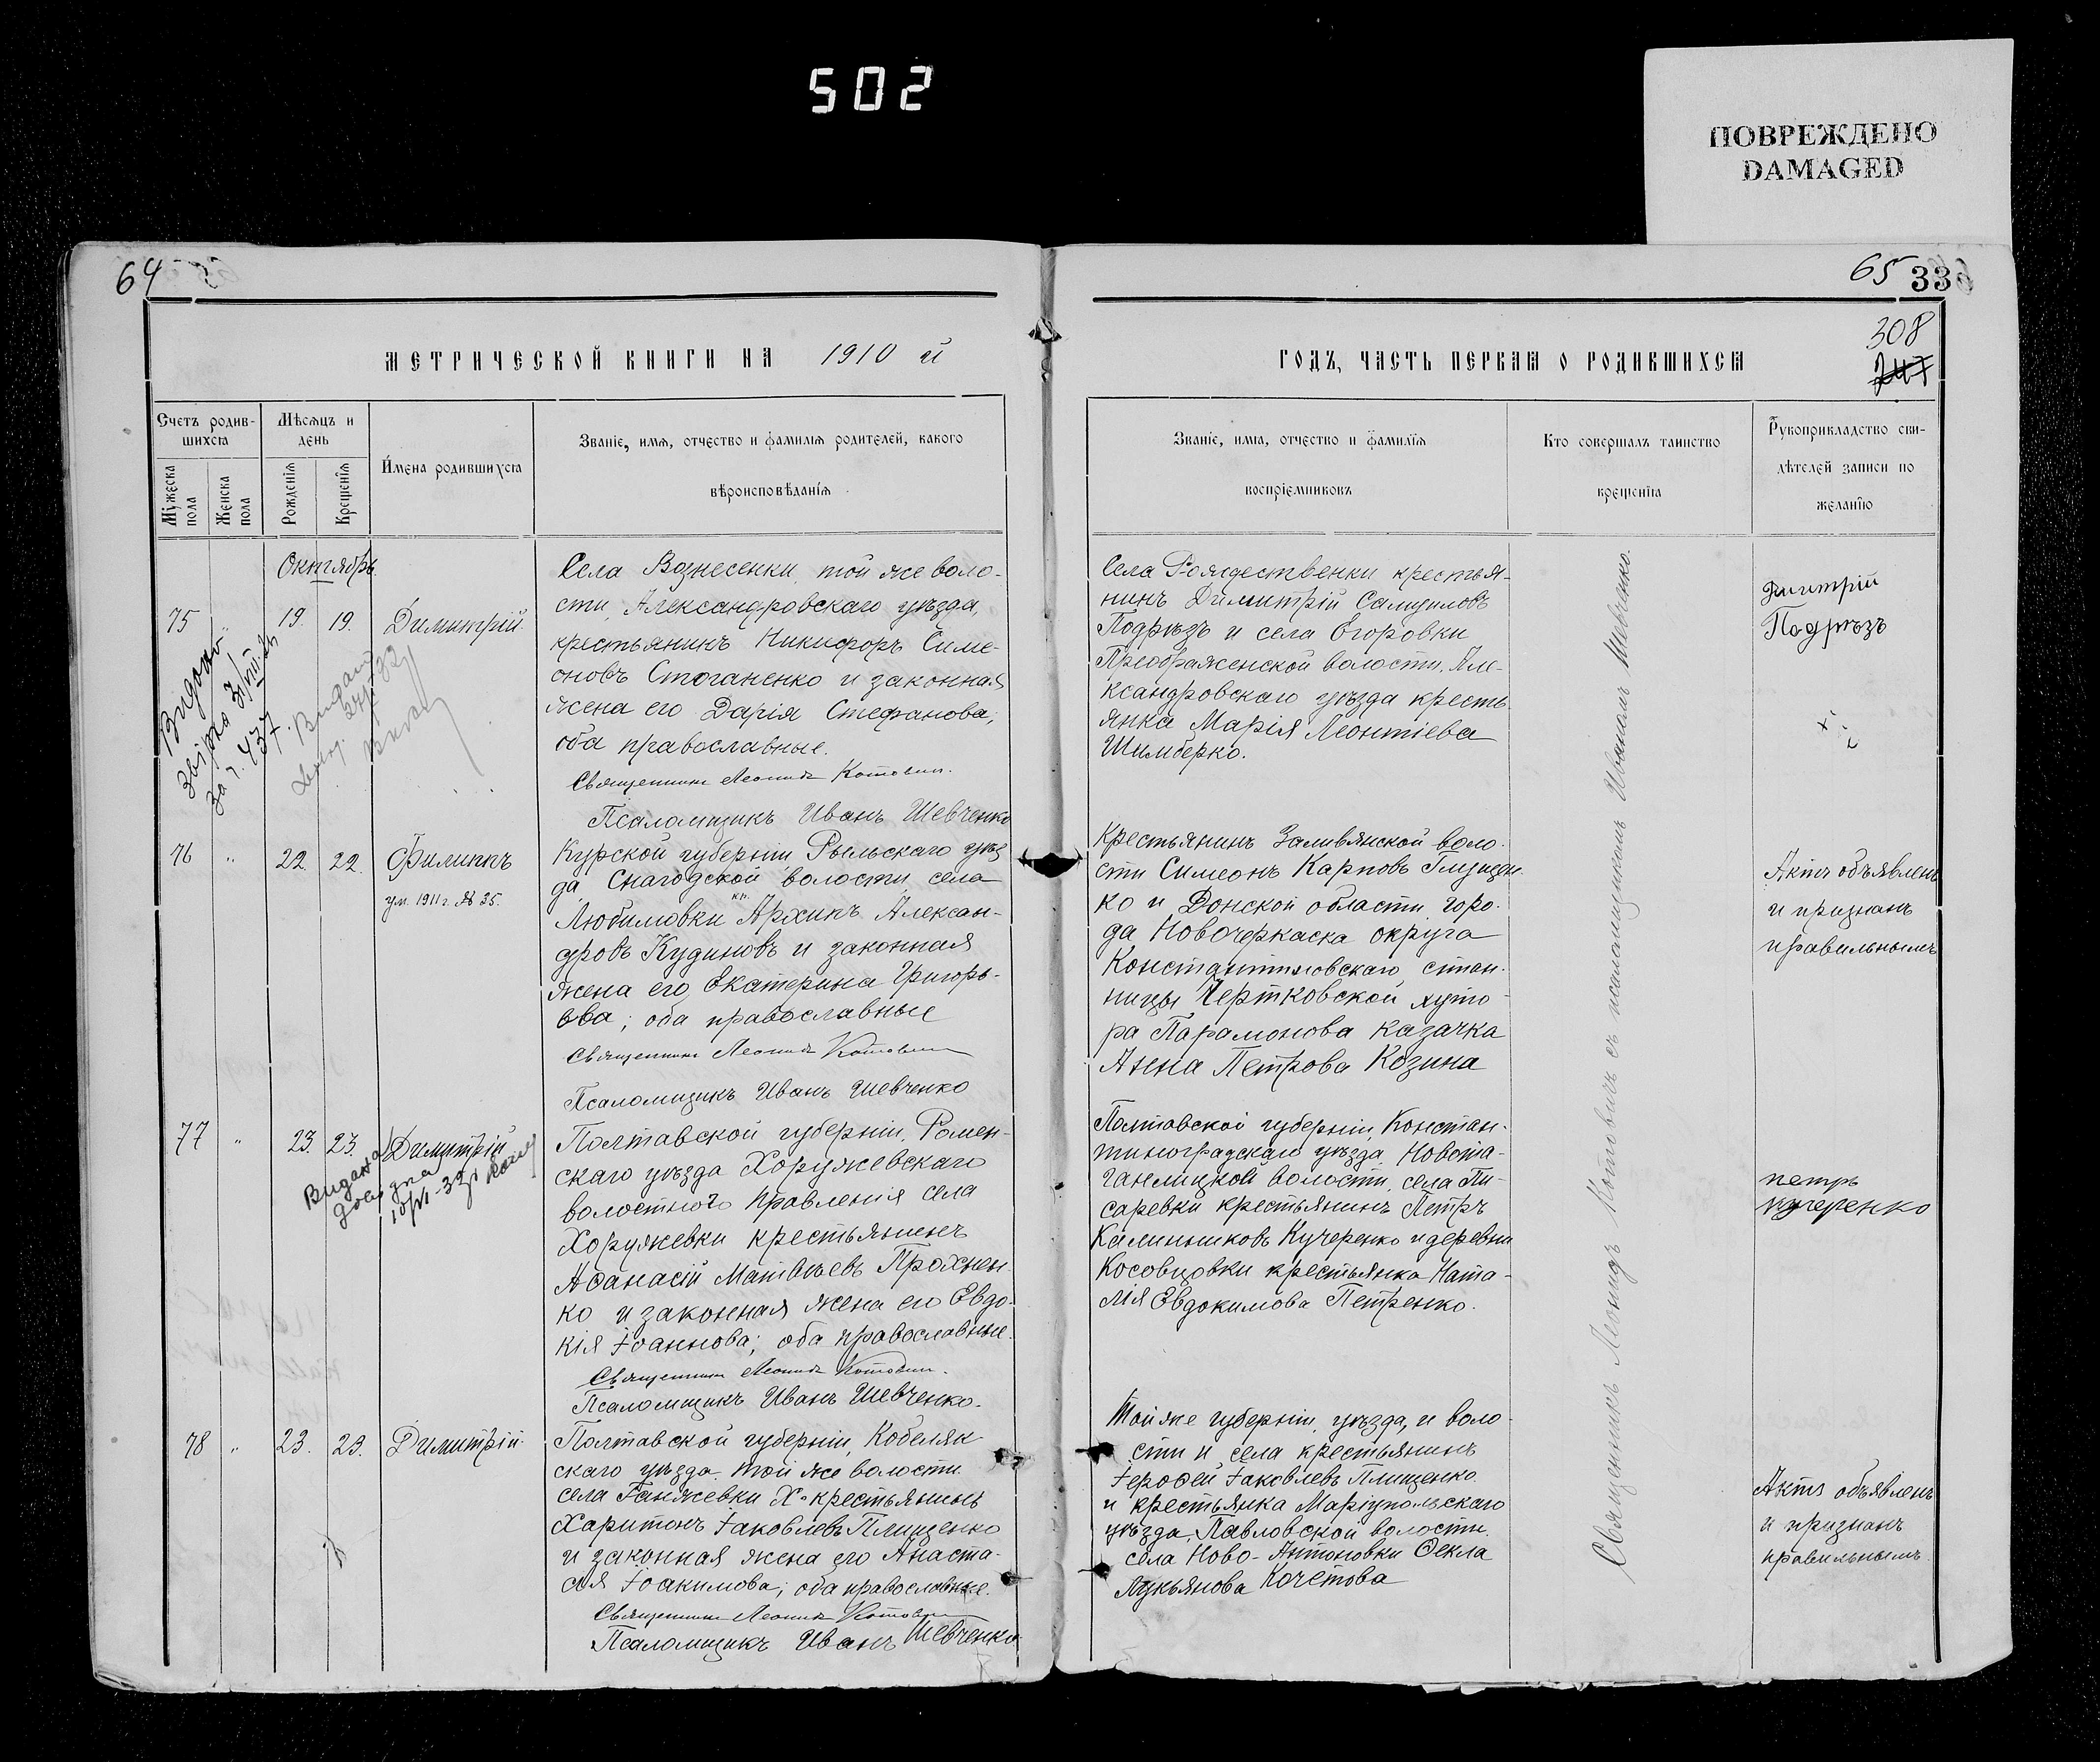 502
ПОВРЕЖДЕНО
DAMAGED
64
65
33
308
247
МЕТРИЧЕСКОЙ КНИГИ НА 1910 й
ГОДЪ, ЧАСТЬ ПЕРВАЯ О РОДИВШИХСЯ
Счетъ родив-
шихся
Мужеска пола
Женска пола
Мѣсяцъ и
день
Рожденія
Крещенія
Имена родившихся
Званіе, имя, отчество и фамилія родителей, какого
вѣроисповѣданія
Званіе, имя, отчество и фамилія
воспріемниковъ
Кто совершалъ таинство
крещенія
Рукоприкладство сви-
дѣтелей записи по
желанію
Октябрь
75 " 19. 19. Димитрій.
Видано
за ч. 437
Села Вознесенки, той же воло-
сти, Александровскаго уѣзда,
крестьянинъ Никифоръ Симе-
оновъ Стоганенко и законная
жена его Дарія Стефанова,
оба православные.
Священникъ Леонидъ Котовичъ.
Псаломщикъ Иванъ Шевченко
Села Рождественки крестья-
нинъ Димитрій
Подрѣзъ и села Егоровки
Преображенской волости, Але-
ксандровскаго уѣзда кресть-
янка Марія Леонтіева
Шимберко.
Димитрій
Подрѣзъ
76 " 22. 22. Филиппъ
ум. 1911 г. № 35.
Курской губерніи Рыльскаго уѣз
да Снагодской волости, села
Любимовки кр. Архипъ Алексан-
дровъ Кудиновъ и законная
жена его Екатерина Григорь-
ева; оба православные
Священникъ Леонидъ Котовичъ
Псаломщикъ Иванъ Шевченко
Крестьянинъ Заливянской воло-
сти Симеонъ Карповъ Глущен-
ко и Донской области горо-
да Новочеркаска округа
Константиновскаго стан-
ницы Чертковской хуто-
ра Парамонова казачка
Анна Петрова Козина
Актъ объявленъ
и признанъ
правильнымъ
77 " 23. 23. Димитрій
Видана
Полтавской губерніи, Ромен-
скаго уѣзда Хоружевскаго
волостного правленія села
Хоружевки крестьянинъ
Аѳанасій Матвѣевъ Прохнен-
ко и законная жена его Евдо-
кія Іоаннова; оба православные.
Священникъ Леонидъ Котовичъ.
Псаломщикъ Иванъ Шевченко.
Полтавской губерніи, Констан-
тиноградскаго уѣзда Новота-
ганлицкой волости, села Пи-
саревки крестьянинъ Петръ
Калинниковъ Кучеренко и деревни
Косовцовки крестьянка Ната-
лія Евдокимова Петренко.
петръ
кучеренко
78 " 23. 23. Димитрій.
Полтавской губерніи, Кобеляк-
скаго уѣзда, той же волости
села Ганжевки Х. крестьянинъ
Харитонъ Іаковлевъ Плищенко
и законная жена его Анаста-
сія Іоакимова; оба православные.
Священникъ Леонидъ Котовичъ
Псаломщикъ Иванъ Шевченко
Той же губерніи, уѣзда, и воло-
сти и села крестьянинъ
Іероѳей Іаковлевъ Плищенко
и крестьянка Маріупольскаго
уѣзда, Павловской волости.
села Ново-Антоновки Ѳекла
Лукьянова Кочетова
Актъ объявленъ
и признанъ
правильнымъ
Священникъ Леонидъ Котовичъ съ псаломщикомъ Иваномъ Шевченко.